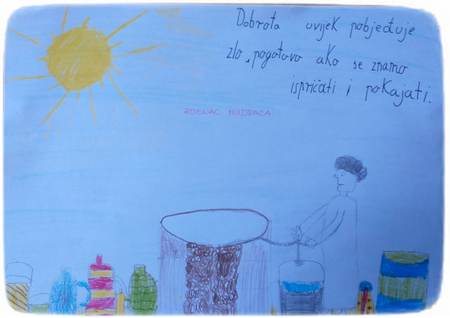 Dobrota uvijek pobjeđuje
zlo, pogotovo ako se znamo
ispričati i pokajati.
ZDENAC MUDRACA